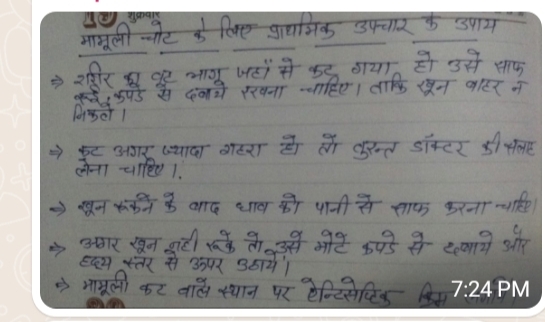 शुक्रवार
मामूली चोट के लिए प्राथमिक उपचार के उपाय
⇒ शरीर का वह भाग जहाँ से कट गया हो उसे साफ
कपडे से दबाये रखना चाहिए। ताकि खून बाहर न
निकले।
⇒ कट अगर ज्यादा गहरा हो तो तुरन्त डॉक्टर की सलाह
लेना चाहिए।
⇒ खून रूकने के बाद घाव को पानी से साफ करना चाहिए।
⇒ अगर खून नही रूके तो उसे मोटे कपडे से दबाये और
हृदय स्तर से ऊपर उठाये।
⇒ मामूली कट वाले स्थान पर ऐन्टिसेप्टिक
7:24 PM